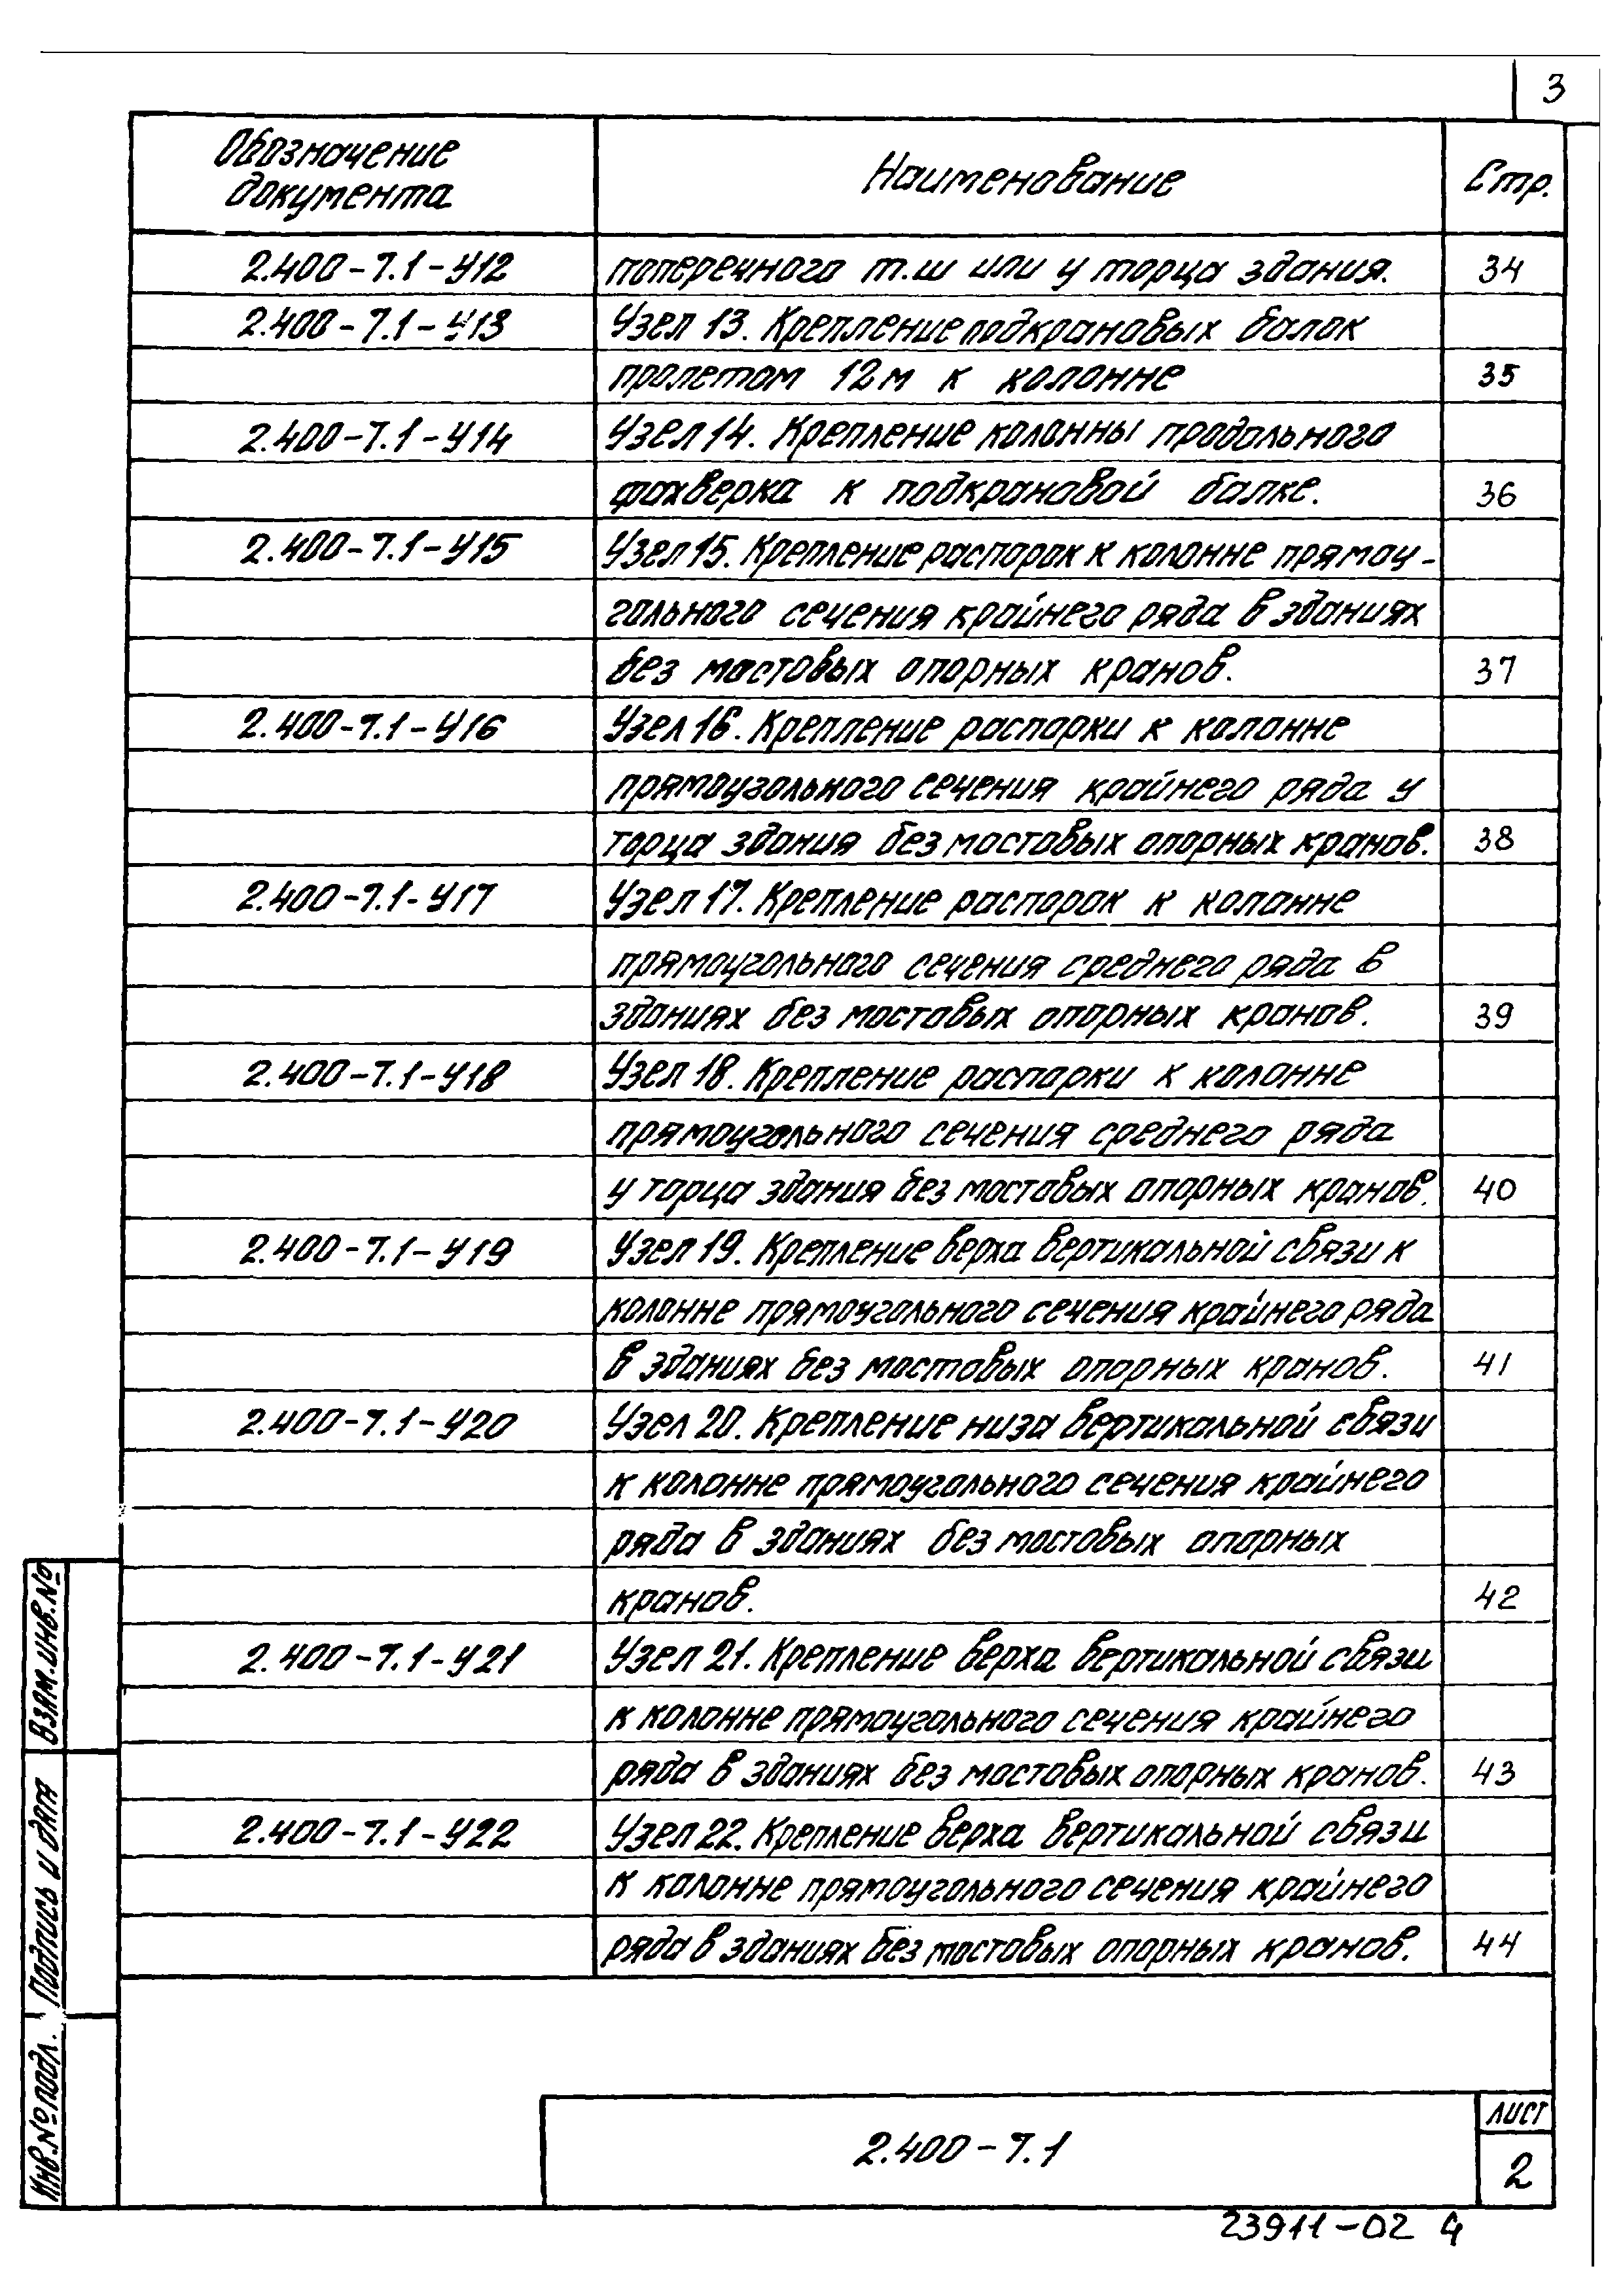 3
Обозначение документа Наименование Стр.
2.400-7.1-У12 поперечного т.ш или у торца здания. 34
2.400-7.1-У13 Узел 13. Крепление подкрановых балок
пролетом 12м к колонне 35
2.400-7.1-У14 Узел 14. Крепление колонны продольного
фахверка к подкрановой балке. 36
2.400-7.1-У15 Узел 15. Крепление распорок к колонне прямоу-
гольного сечения крайнего ряда в зданиях
без мостовых опорных кранов. 37
2.400-7.1-У16 Узел 16. Крепление распорки к колонне
прямоугольного сечения крайнего ряда у
торца здания без мостовых опорных кранов. 38
2.400-7.1-У17 Узел 17. Крепление распорок к колонне
прямоугольного сечения среднего ряда в
зданиях без мостовых опорных кранов. 39
2.400-7.1-У18 Узел 18. Крепление распорки к колонне
прямоугольного сечения среднего ряда
у торца здания без мостовых опорных кранов. 40
2.400-7.1-У19 Узел 19. Крепление верха вертикальной связи к
колонне прямоугольного сечения крайнего ряда
в зданиях без мостовых опорных кранов. 41
2.400-7.1-У20 Узел 20. Крепление низа вертикальной связи
к колонне прямоугольного сечения крайнего
ряда в зданиях без мостовых опорных
кранов. 42
2.400-7.1-У21 Узел 21. Крепление верха вертикальной связи
к колонне прямоугольного сечения крайнего
ряда в зданиях без мостовых опорных кранов. 43
2.400-7.1-У22 Узел 22. Крепление верха вертикальной связи
к колонне прямоугольного сечения крайнего
ряда в зданиях без мостовых опорных кранов. 44
Взам.инв.№
Подпись и дата
Инв.№ подл.
2.400-7.1
лист
2
23911-02 4